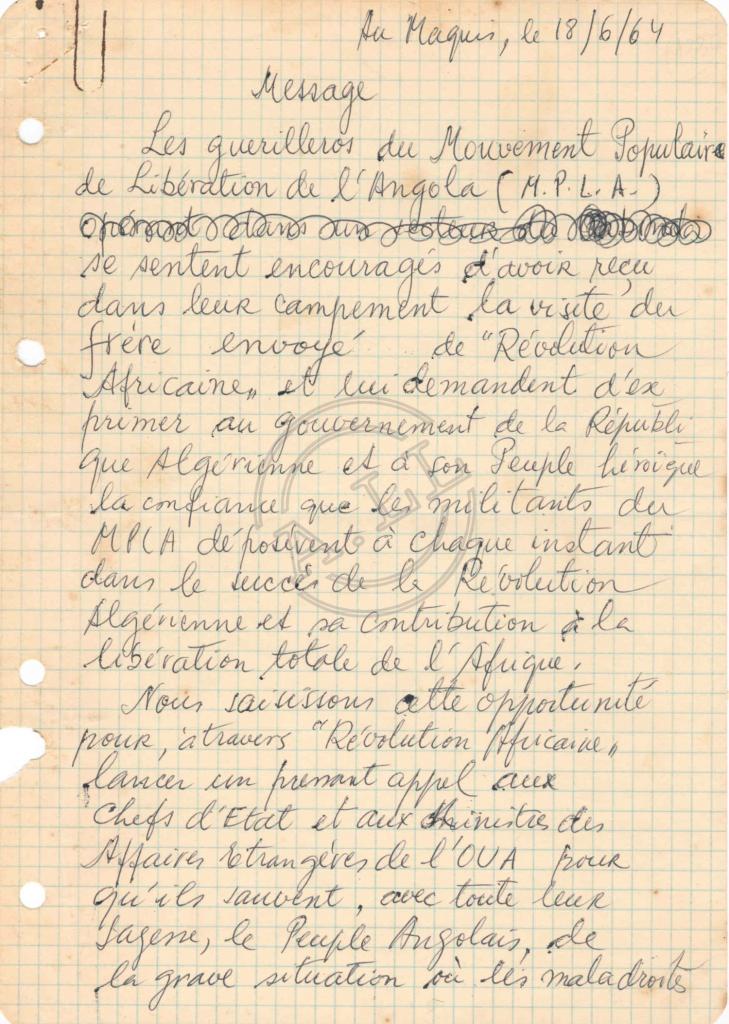 Au Maquis, le 18/6/64
Message
Les guerilleros du Mouvement Populaire
de Libération de l'Angola (M.P.L.A.)
opérant dans un secteur du
se sentent encouragés d'avoir reçu
dans leur campement la visite du
frère envoyé de "Révolution
Africaine" et lui demandent d'ex
primer au gouvernement de la Républi
que Algérienne et à son Peuple héroïque
la confiance que les militants du
MPLA déposent à chaque instant
dans le succès de la Révolution
Algérienne et sa contribution à la
libération totale de l'Afrique.
Nous saisissons cette opportunité
pour, à travers "Révolution Africaine"
lancer un pressant appel aux
Chefs d'Etat et aux Ministres des
Affaires Etrangères de l'OUA pour
qu'ils sauvent, avec toute leur
Sagesse, le Peuple Angolais, de
la grave situation où les maladroits
A.LL